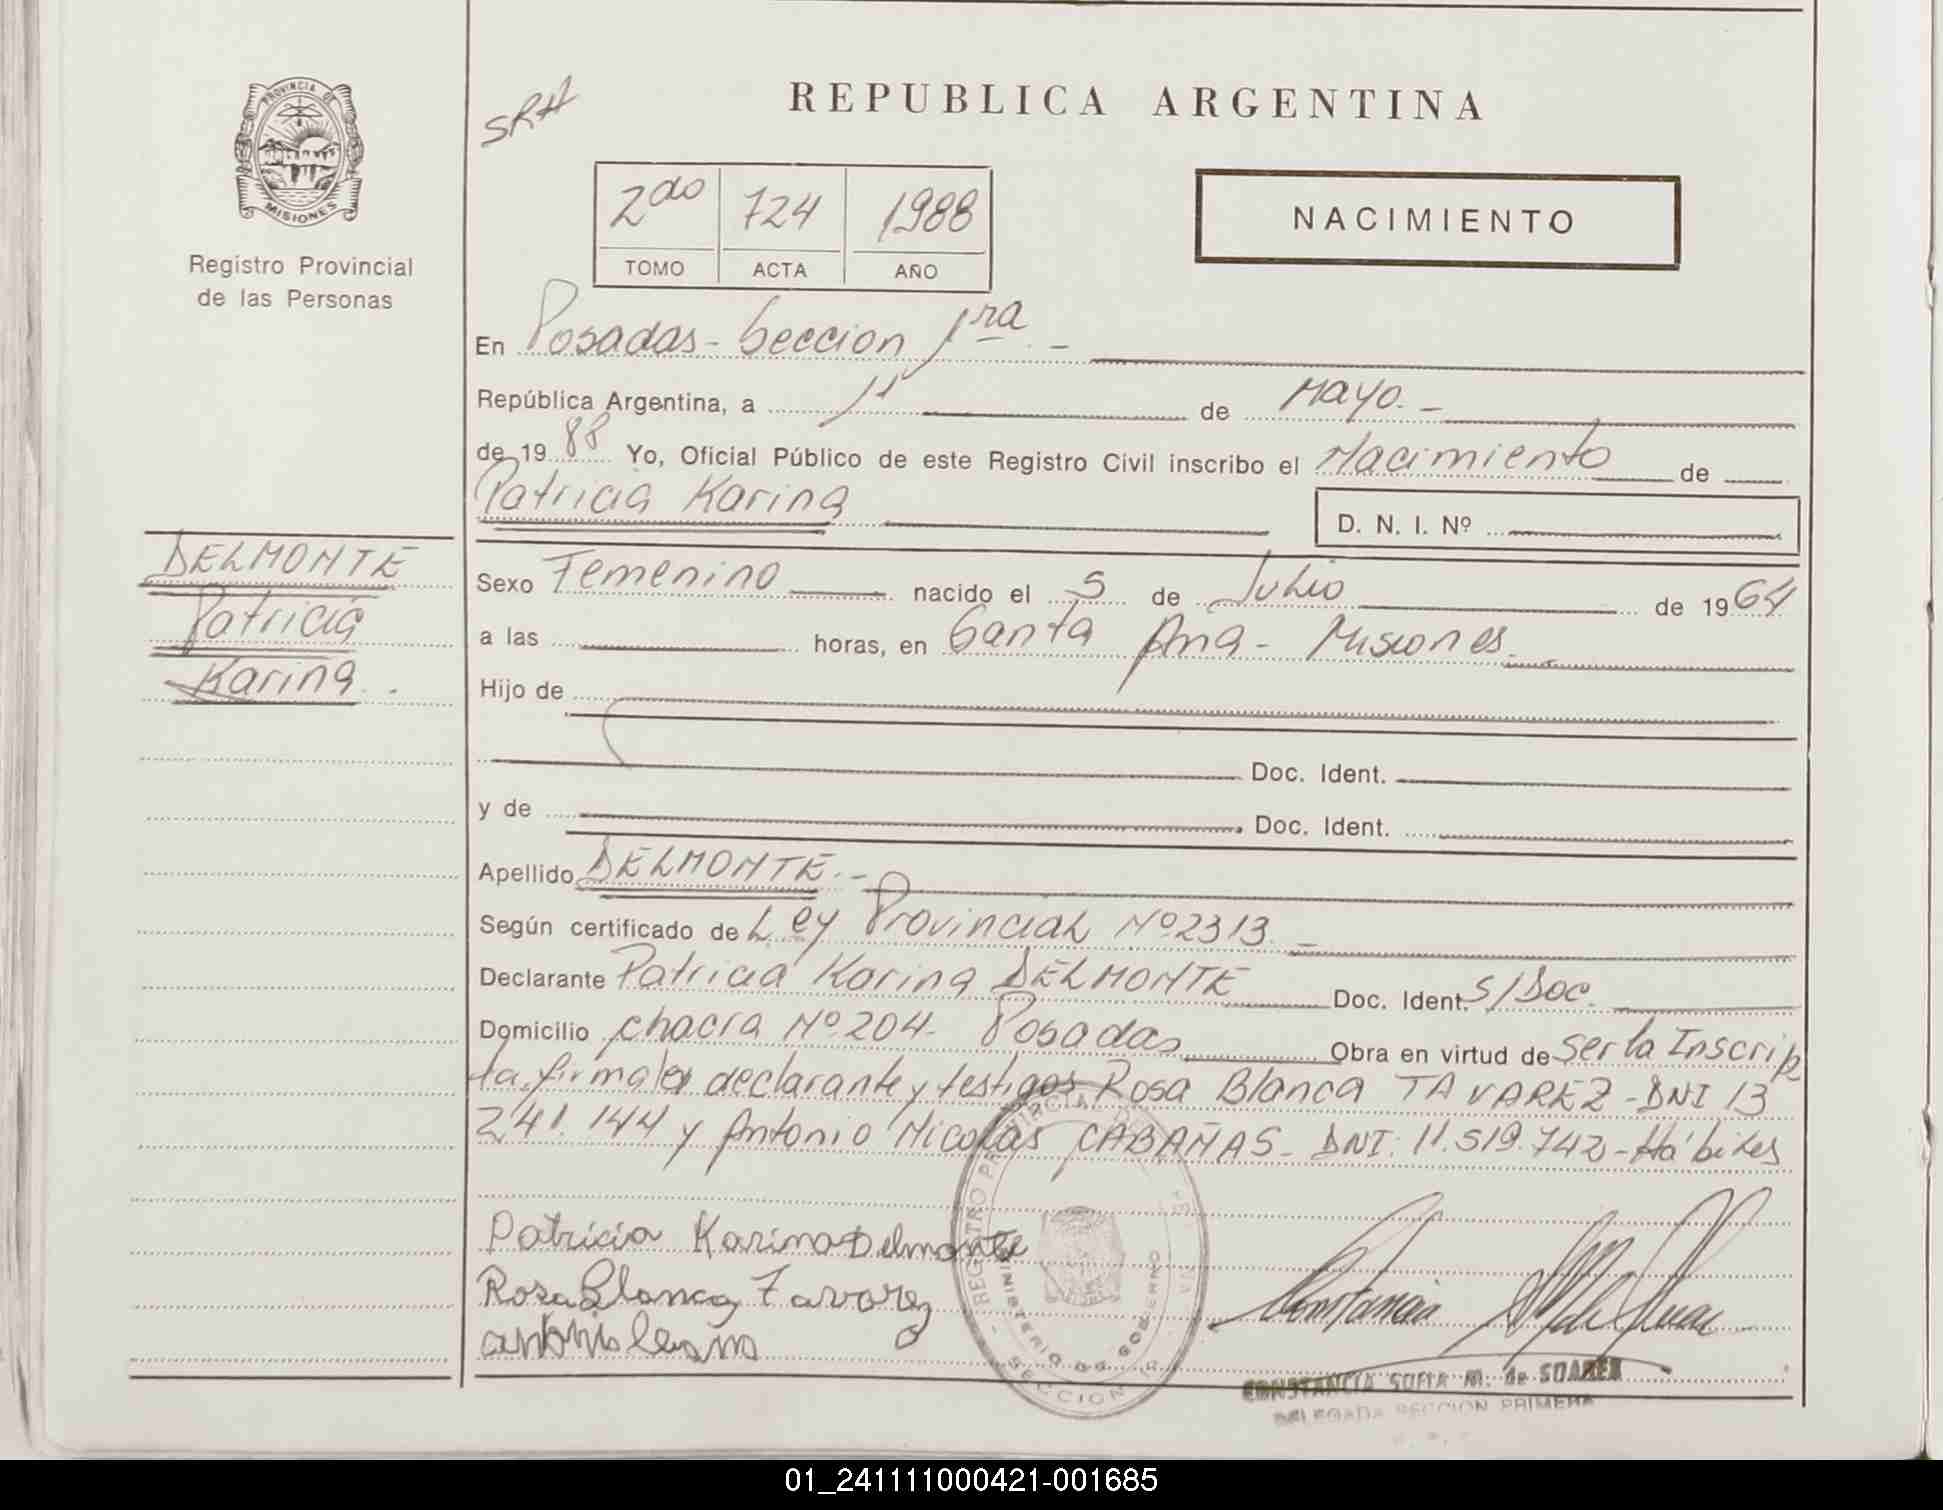 PROVINCIA DE
MISIONES
Registro Provincial
de las Personas
SRA
REPUBLICA ARGENTINA
2do 724 1988
TOMO ACTA AÑO
NACIMIENTO
En Posadas - Seccion 1ra -
República Argentina, a 11 de Mayo. -
de 19 88 Yo, Oficial Público de este Registro Civil inscribo el Nacimiento de
Patricia Karina
D. N. I. Nº
DELMONTE
Patricia
Karina
Sexo Femenino nacido el 5 de Julio de 19 64
a las horas, en Santa Ana - Misiones
Hijo de
Doc. Ident.
y de Doc. Ident.
Apellido DELMONTE. -
Según certificado de Ley Provincial Nº 2313. -
Declarante Patricia Karina DELMONTE Doc. Ident. S/Doc.
Domicilio chacra Nº 204 - Posadas Obra en virtud de ser la Inscrip
ta, firma la declarante y testigos Rosa Blanca TAVAREZ - DNI 13
241.144 y Antonio Nicolas CABAÑAS - DNI: 11.519.742 - Hábiles
Patricia Karina Delmonte
Rosa Blanca Tavarez
REGISTRO PROVINCIAL DE
MINISTERIO DE GOBIERNO
SECCION 1ª
CONSTANCIA SOFIA M. de SOAREZ
DELEGADA SECCION PRIMERA
01_241111000421-001685